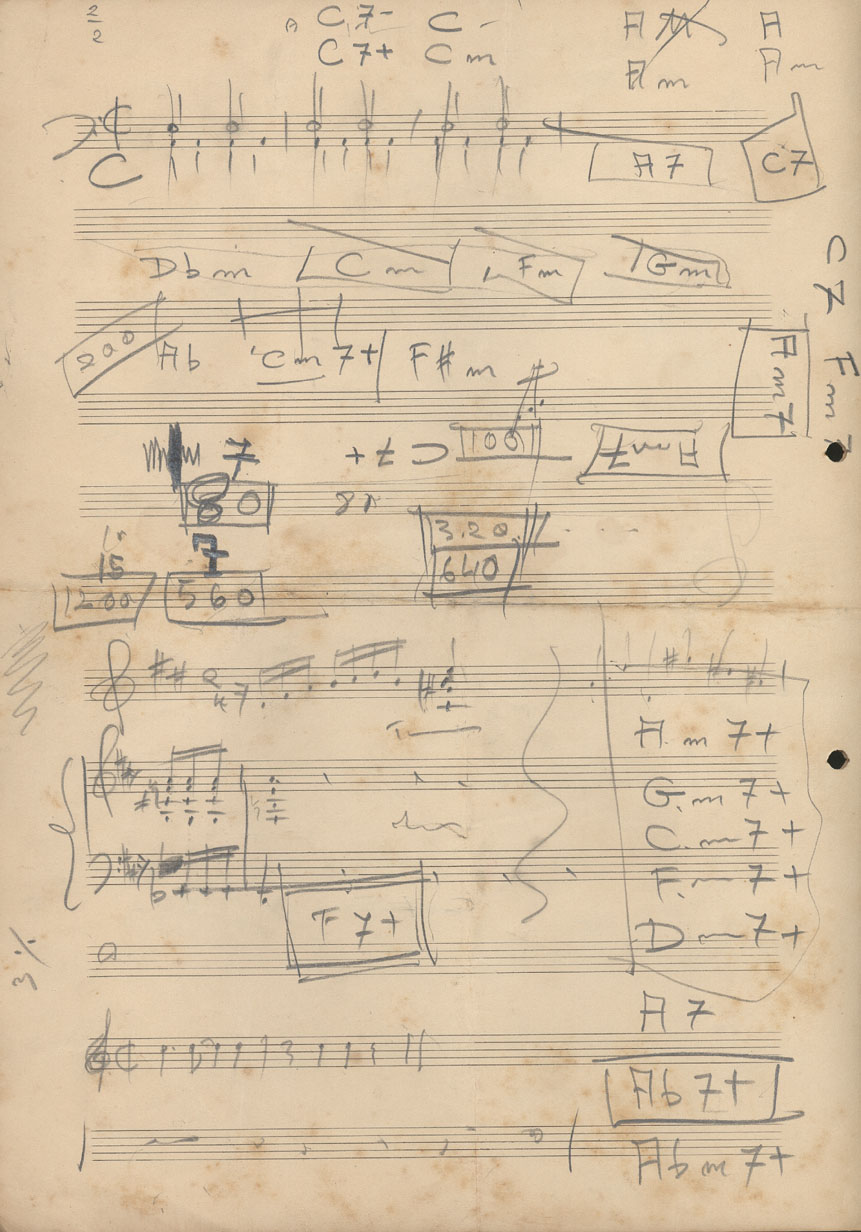 2/2 C7- C- A A
C7+ Cm Am Am
C
A7 C7
Dbm Cm Fm Gm
C7 Fm7
200 Ab Cm7+ F#m
Am7
7 +7 C 100 Am7
80
3.20
7 640
15
1200 560
A.m7+
G.m7+
C.m7+
F7+ F.m7+
Dm7+
3%
A7
Ab7+
Abm7+